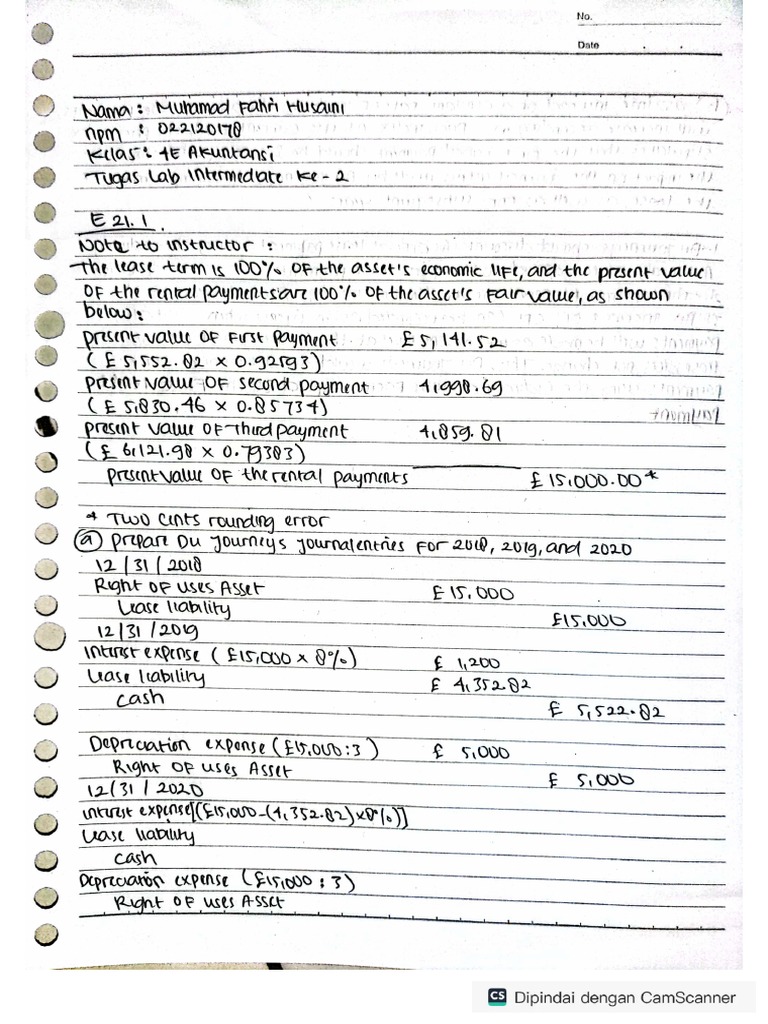 No.
Date
Nama : Muhamad Fahri Husaini
npm : 022120178
Kelas : 4E Akuntansi
Tugas Lab Intermediate Ke - 2
E 21.1.
Note to instructor :
The lease term is 100% of the asset's economic life, and the present value
of the rental payments are 100% of the asset's fair value, as shown
below :
present value of First payment £ 5,141.52
( £ 5,552.82 x 0.92593)
present value of second payment 4,998.69
( £ 5,830.46 x 0.85734)
present value of Third payment 4,859.81
( £ 6,121.98 x 0.79383)
present value of the rental payments £ 15,000.00*
* Two cents rounding error
(a) prepare Du Journeys journal entries for 2018, 2019, and 2020
12 / 31 / 2018
Right of uses Asset £ 15.000
Lease liability £15,000
12 / 31 / 2019
Interest expense ( £15,000 x 8%) £ 1,200
Lease liability £ 4,352.82
cash £ 5,522.82
Depreciation expense (£15,000 : 3 ) £ 5,000
Right of uses Asset £ 5,000
12 / 31 / 2020
interest expense[(£15,000-(4,352.82)x8%)]
Lease liability
cash
Depreciation expense (£15,000 : 3)
Right of uses Asset
CS Dipindai dengan CamScanner